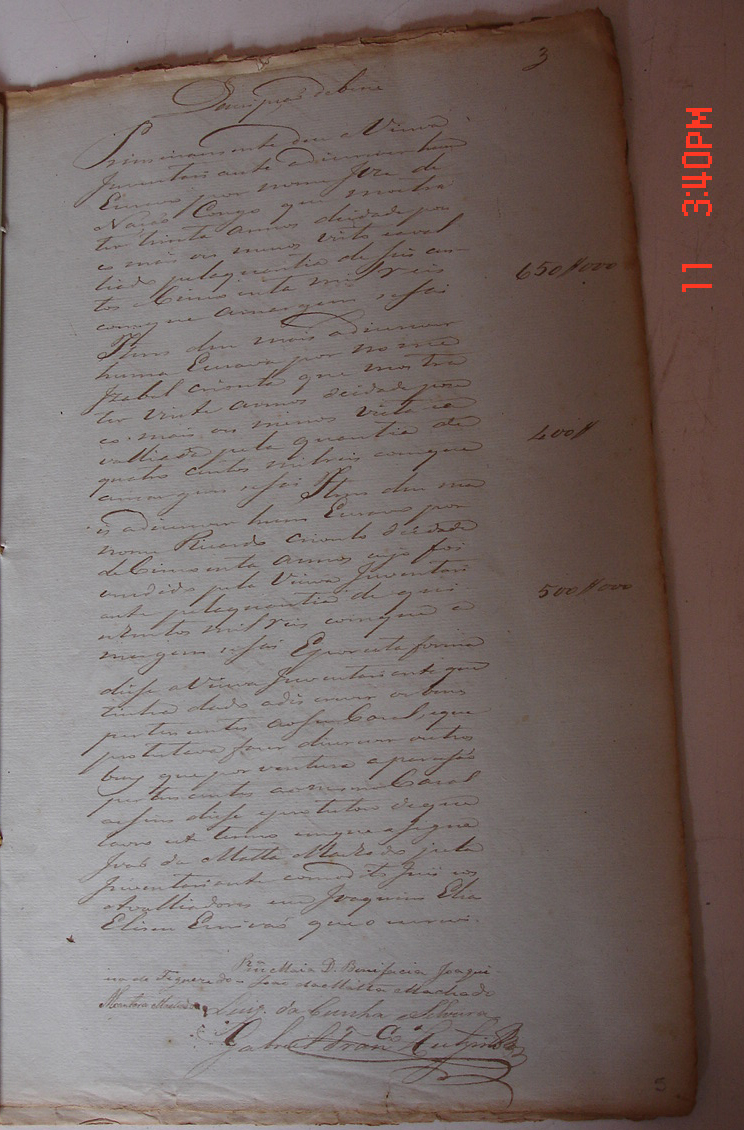 3
Principiaes de bens
Primeiramente deu a Viuva
Inventariante adiscrever hum
Escravo por nome Joze de
Nação Congo que mostra
ter trinta annos deidade pou
co mais ou menos visto eaval
liado pelaquantia de seis cen
tos eCincoenta mil reis
comque amargem sesai
650$000
Item deu mais adiscrever
huma Escrava por nome
Izabel crioula que mostra
ter Vinte annos deidade pou
co mais ou menos vista ea
valliada pela quantia de
quatro centos milreis comque
amargem sesai Item deu ma
400$
is adiscrever hum Escravo por
nome Ricardo crioulo deidade
deCincoenta annos cujo foi
vendido pela Viuva Inventari
ante pelaquantia de qui
nhentos mil reis comque a
500$000
margem sesai Eporesta forma
disse aViuva Inventariante que
tinha dado adiscrever os bens
pertencentes aoseu Casal, eque
protestava fazer descrever outros
bens que porventura apareção
pertencentes aomesmo Casal
eassim disse eprotestou deque
lavro este termo emque assigna
João da Matta Machado pela
Inventariante comod.to Juis eos
Avalliadores eu Joaquim
Eliseu Escrivão que o escrevi.
Maria D. Bonifacia Joaqui
na de Figueredo João da Matta Machado
Luiz da Cunha eSilveira
Gabriel Fran.co
3
11 3:40PM